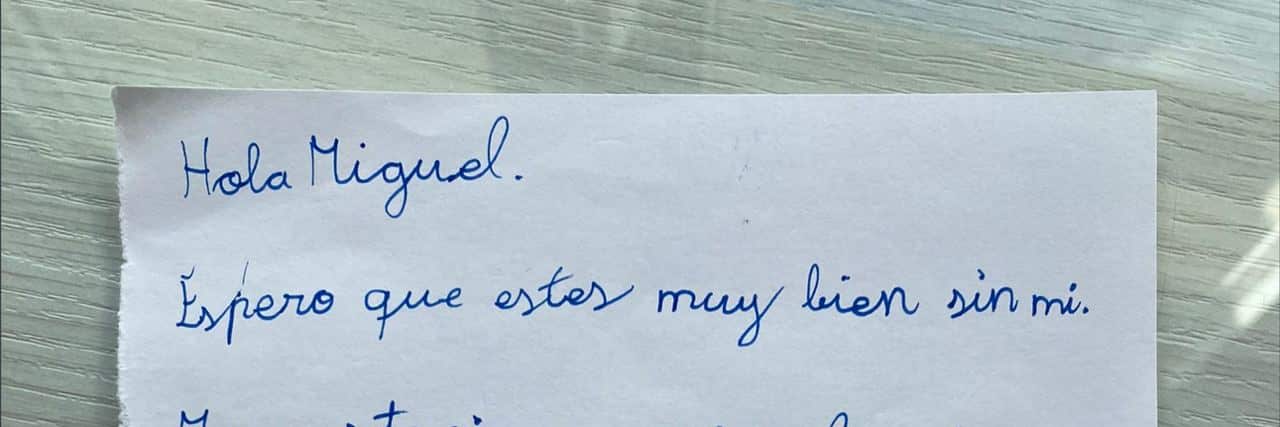 Hola Miguel.
Espero que estes muy bien sin mi.